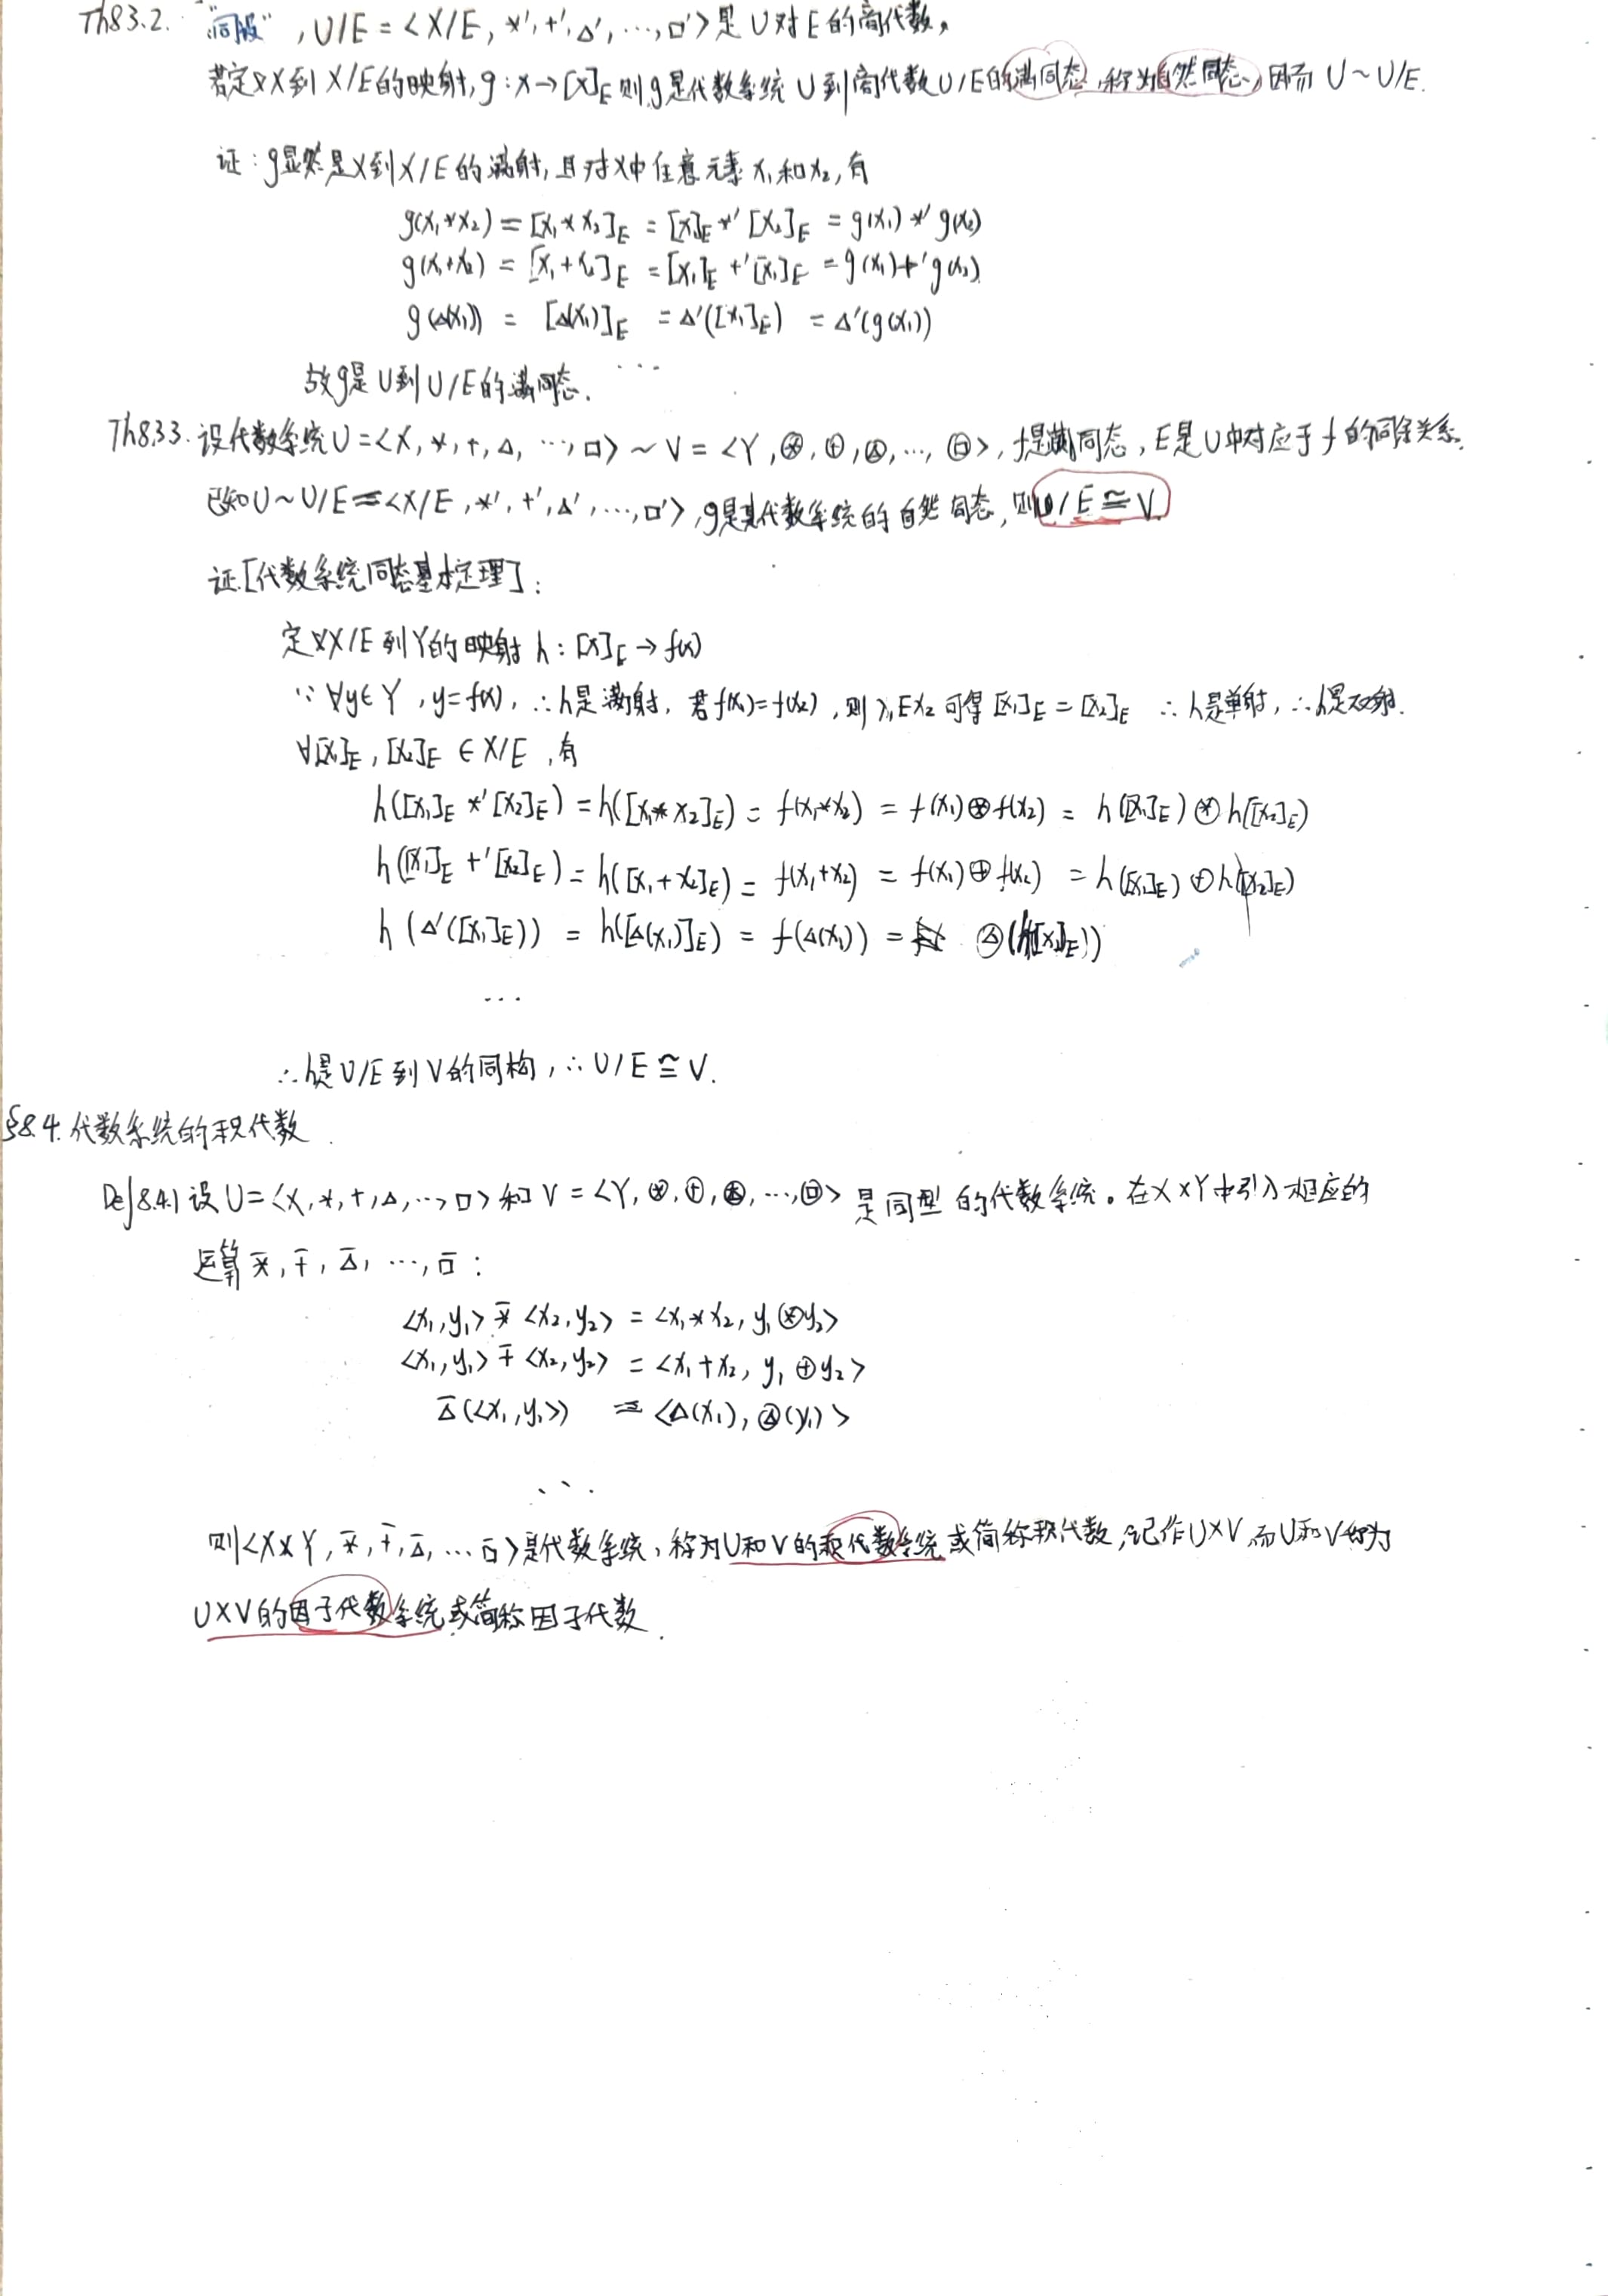 Th8.3.2. "同股", U/E = <X/E, *', +', Δ', …, □'> 是 U 对 E 的商代数,
若定义X到 X/E的映射, g: x→[x]_E 则g是代数系统 U 到商代数U/E的满同态, 称为自然同态, 因而 U ~ U/E.
证: g显然是X到X/E的满射, 且对X中任意元素 x₁和x₂, 有
g(x₁*x₂) = [x₁*x₂]_E = [x]_E *' [x₂]_E = g(x₁) *' g(x₂)
g(x₁+x₂) = [x₁+x₂]_E = [x₁]_E +' [x₁]_E = g(x₁) +' g(x₂)
g(Δ(x₁)) = [Δ(x₁)]_E = Δ'([x₁]_E) = Δ'(g(x₁))
…
故g是U到U/E的满同态.
Th8.3.3. 设代数系统U = <X, *, +, Δ, …, □> ~ V = <Y, ⊛, ⊕, Ⓐ, …, ⊡>, f是满同态, E是U中对应于f的同余关系.
已知U~U/E = <X/E, *', +', Δ', …, □'>, g是其代数系统的自然同态, 则U/E ≅ V.
证[代数系统同态基本定理]:
定义X/E到Y的映射 h: [x]_E → f(x)
∵ ∀y∈Y, y=f(x), ∴h是满射, 若f(x₁)=f(x₂), 则x₁Ex₂可得[x₁]_E=[x₂]_E ∴h是单射, ∴h是双射.
∀[x₁]_E, [x₂]_E ∈ X/E, 有
h([x₁]_E *' [x₂]_E) = h([x₁*x₂]_E) = f(x₁*x₂) = f(x₁)⊛f(x₂) = h([x₁]_E)⊛h([x₂]_E)
h([x₁]_E +' [x₂]_E) = h([x₁+x₂]_E) = f(x₁+x₂) = f(x₁)⊕f(x₂) = h([x₁]_E)⊕h([x₂]_E)
h(Δ'([x₁]_E)) = h([Δ(x₁)]_E) = f(Δ(x₁)) = Ⓐ(h([x₁]_E))
…
∴h是U/E到V的同构, ∴U/E ≅ V.
§8.4. 代数系统的积代数
Def8.4.1 设U=<X, *, +, Δ, …, □> 和 V=<Y, ⊛, ⊕, Ⓐ, …, ⊡> 是同型的代数系统。在X×Y中引入相应的
运算 *̄, +̄, Δ̄, …, □̄:
<x₁,y₁> *̄ <x₂,y₂> = <x₁*x₂, y₁⊛y₂>
<x₁,y₁> +̄ <x₂,y₂> = <x₁+x₂, y₁⊕y₂>
Δ̄(<x₁,y₁>) = <Δ(x₁), Ⓐ(y₁)>
…
则<X×Y, *̄, +̄, Δ̄, … □̄>是代数系统, 称为U和V的积代数系统或简称积代数, 记作U×V, 而U和V称为
U×V的因子代数系统或简称因子代数.